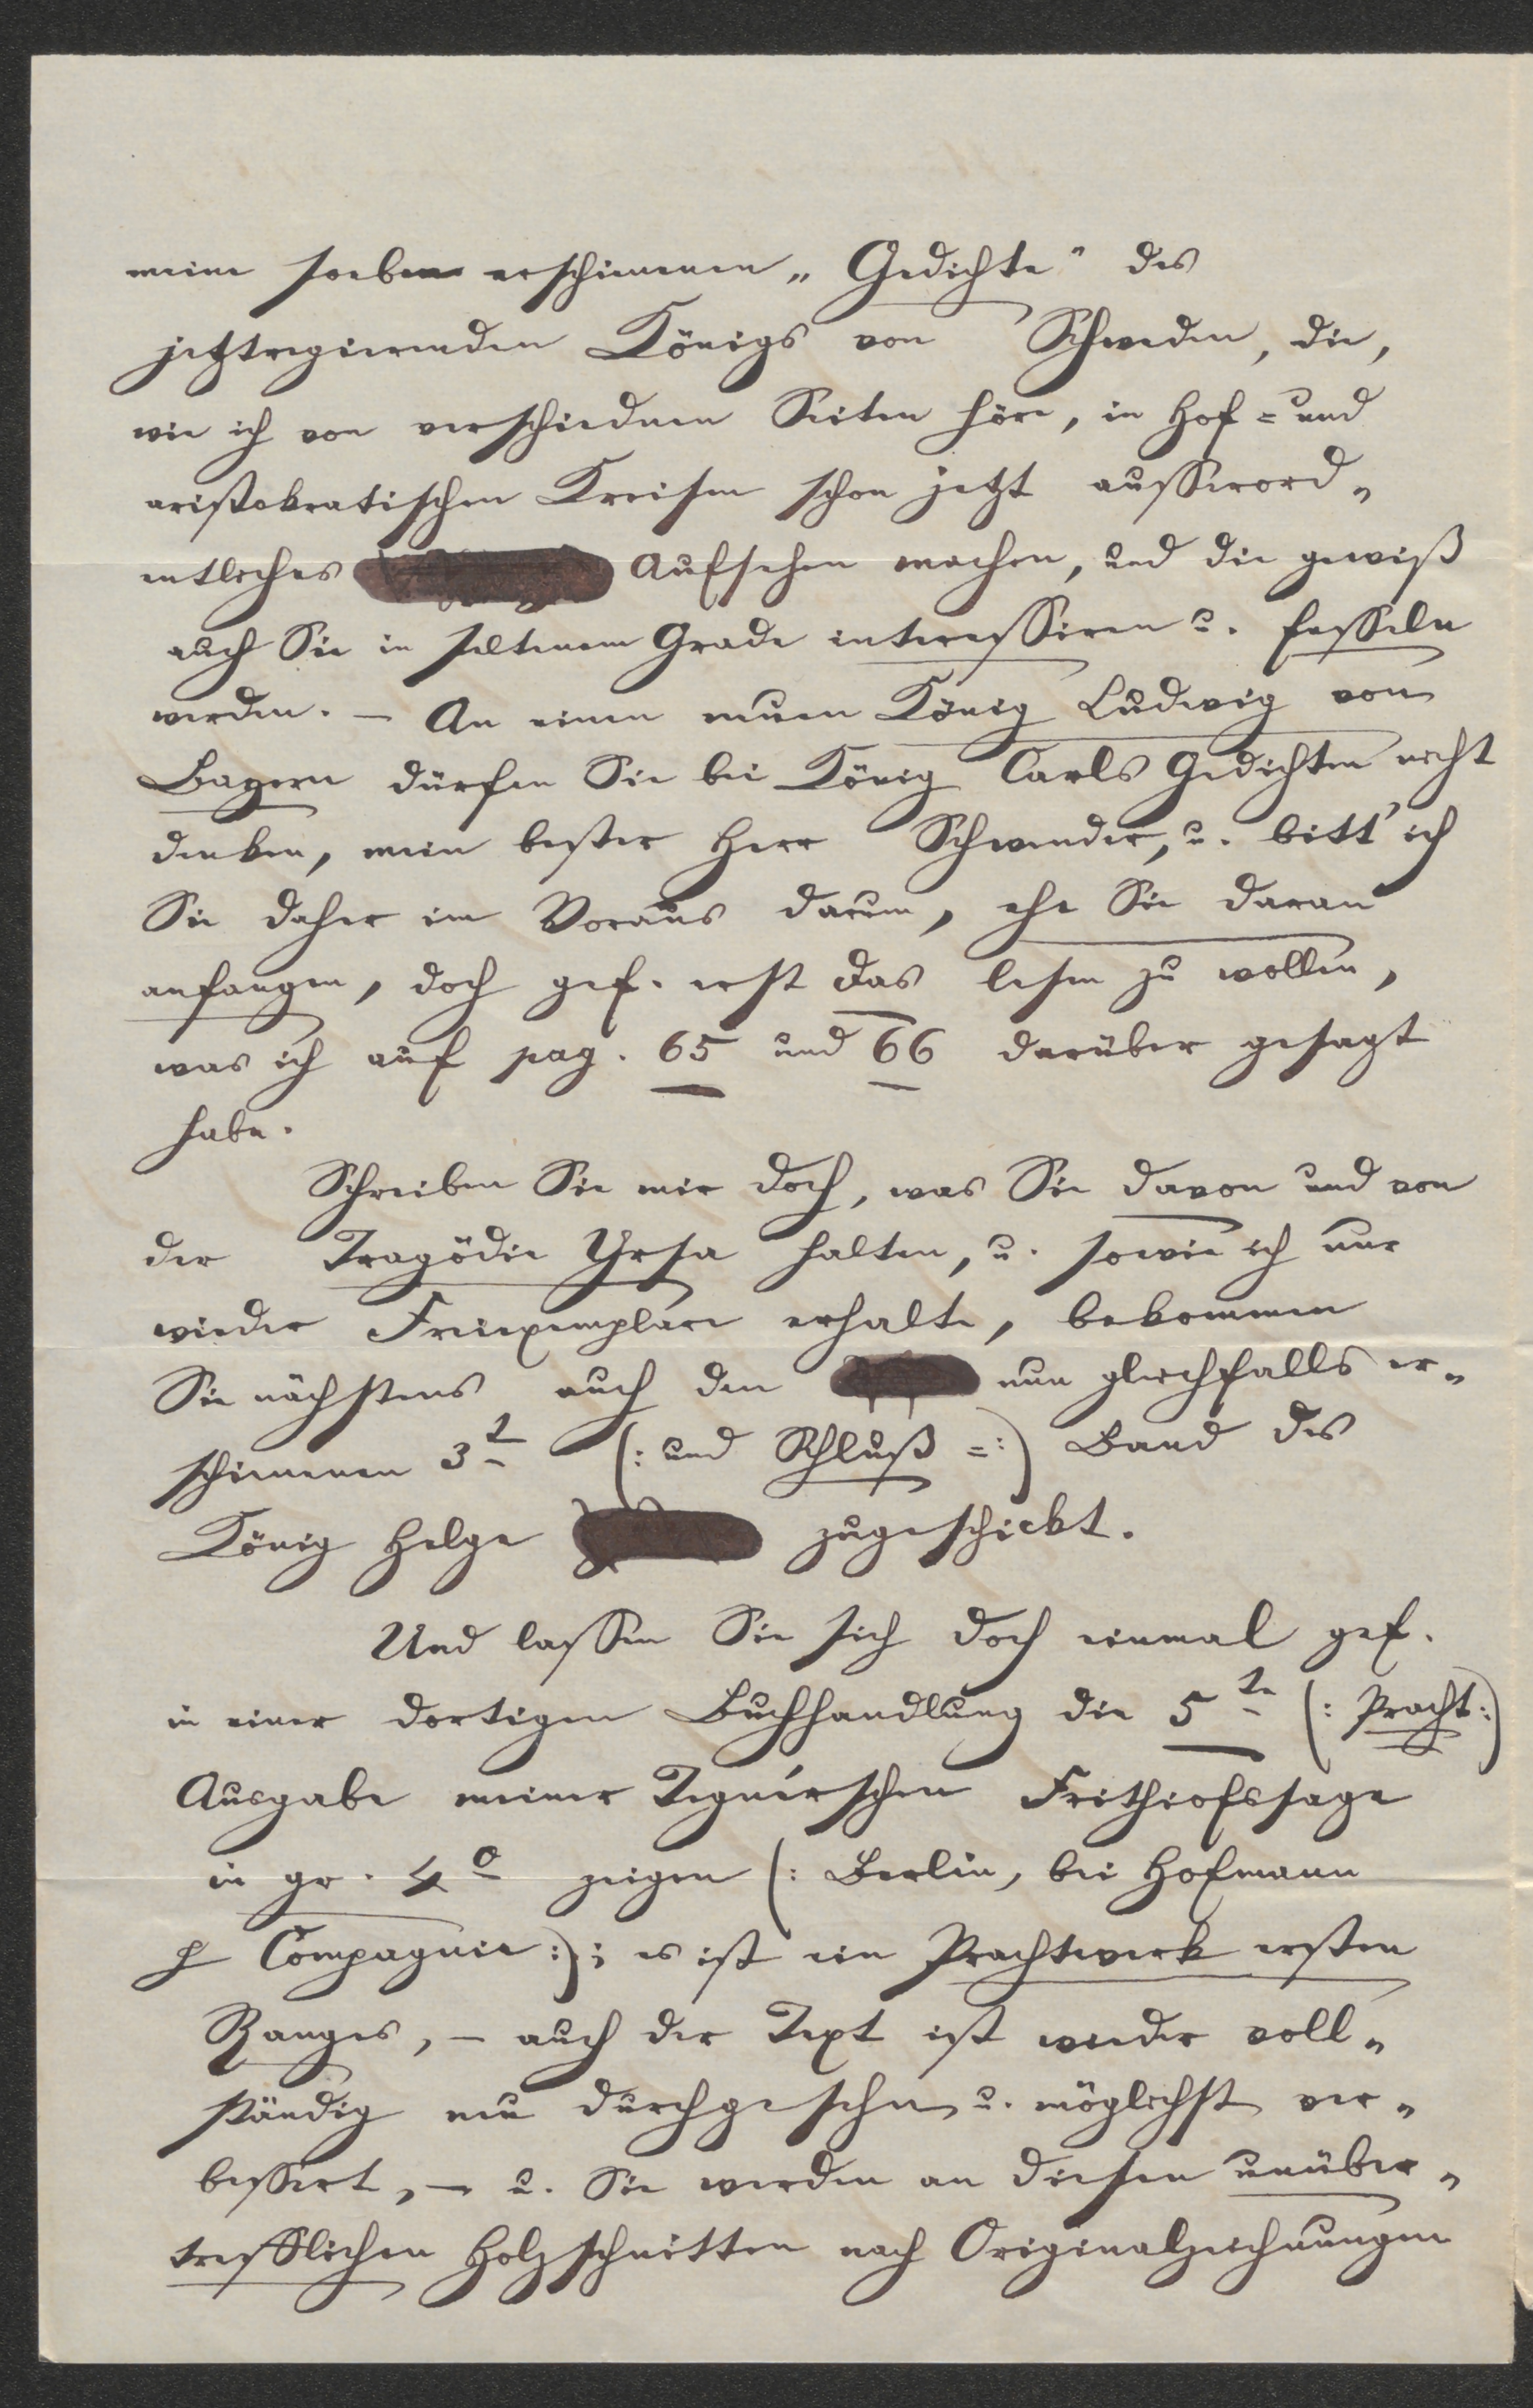 meine soeben erschienenen „Gedichte" des
jetztregierenden Königs von Schweden, die,
wie ich von verschiednen Seiten höre, in Hof- und
aristokratischen Kreisen schon jetzt ausserord„
entliches Aufsehen machen, und die gewiß
auch Sie in seltenem Grade interessiren u. fesseln
werden. – An einen neuen König Ludwig von
Bayern dürfen Sie bei König Carls Gedichten nicht
denken, mein bester Herr Schwender, u. bitt' ich
Sie daher im Voraus darum, ehe Sie daran
anfangen, doch gef. erst das lesen zu wollen,
was ich auf pag. 65 und 66 darüber gesagt
habe.
Schreiben Sie mir doch, was Sie davon und von
der Tragödie Yrsa halten, u. sowie ich nur
wieder Freiexemplare erhalte, bekommen
Sie nächstens auch den nun gleichfalls er„
schienenen 3t (: und Schluß =:) Band des
König Helge zugeschickt.
Und lassen Sie sich doch einmal gef.
in einer dortigen Buchhandlung die 5te (: Pracht:)
Ausgabe meiner Tegnér'schen Frithiofssage
in gr. 4o zeigen (: Berlin, bei Hofmann
& Compagnie:); es ist ein Prachtwerk ersten
Ranges, – auch der Text ist wieder voll„
ständig neu durchgesehn u. möglichst ver„
bessert, – u. Sie werden an diesen unüber„
trefflichen Holzschnitten nach Originalzeichnungen